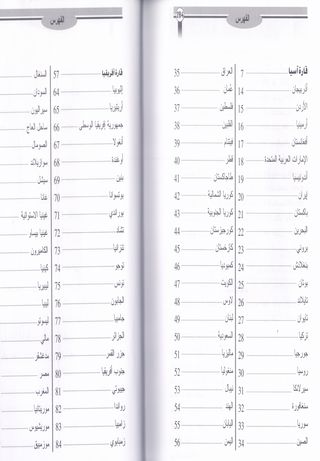 الفهرس
قارة آسيا 7
أذربيجان 14
الأردن 15
أرمينيا 16
أفغانستان 17
الإمارات العربية المتحدة 18
أندونيسيا 19
إيران 20
باكستان 21
البحرين 22
بروني 23
بنغلادش 24
بوتان 25
تايلاند 26
تايوان 27
تركيا 28
جورجيا 29
روسيا 30
سيرلانكا 31
سنغافورة 32
سوريا 33
الصين 34
العراق 35
عُمان 36
فلسطين 37
الفلبين 38
فيتنام 39
قطر 40
طاجاكستان 41
كوريا الشمالية 42
كوريا الجنوبية 43
كورجيزستان 44
كازخستان 45
كمبوديا 46
الكويت 47
لاوس 48
لبنان 49
السعودية 50
ماليزيا 51
منغوليا 52
نيبال 53
الهند 54
اليابان 55
اليمن 56
الفهرس
قارة أفريقيا 57
إثيوبيا 64
أريتيريا 65
جمهورية إفريقيا الوسطى 66
أنغولا 67
أوغندة 68
بنين 69
بوتسوانا 70
بورندي 71
تشاد 72
تنزانيا 73
توجو 74
تونس 75
الجابون 76
جامبيا 77
الجزائر 78
جزر القمر 79
جنوب أفريقيا 80
جيبوتي 81
رواندا 82
زامبيا 83
زمبابوي 84
السنغال
السودان
سيراليون
ساحل العاج
الصومال
سوازيلاند
سيشل
غانا
غينيا الاستوائية
غينيا بيساو
الكاميرون
كينيا
ليبيريا
ليبيا
ليسوتو
مالي
مدغشقر
مصر
المغرب
موريتانيا
موريشيوس
موزمبيق